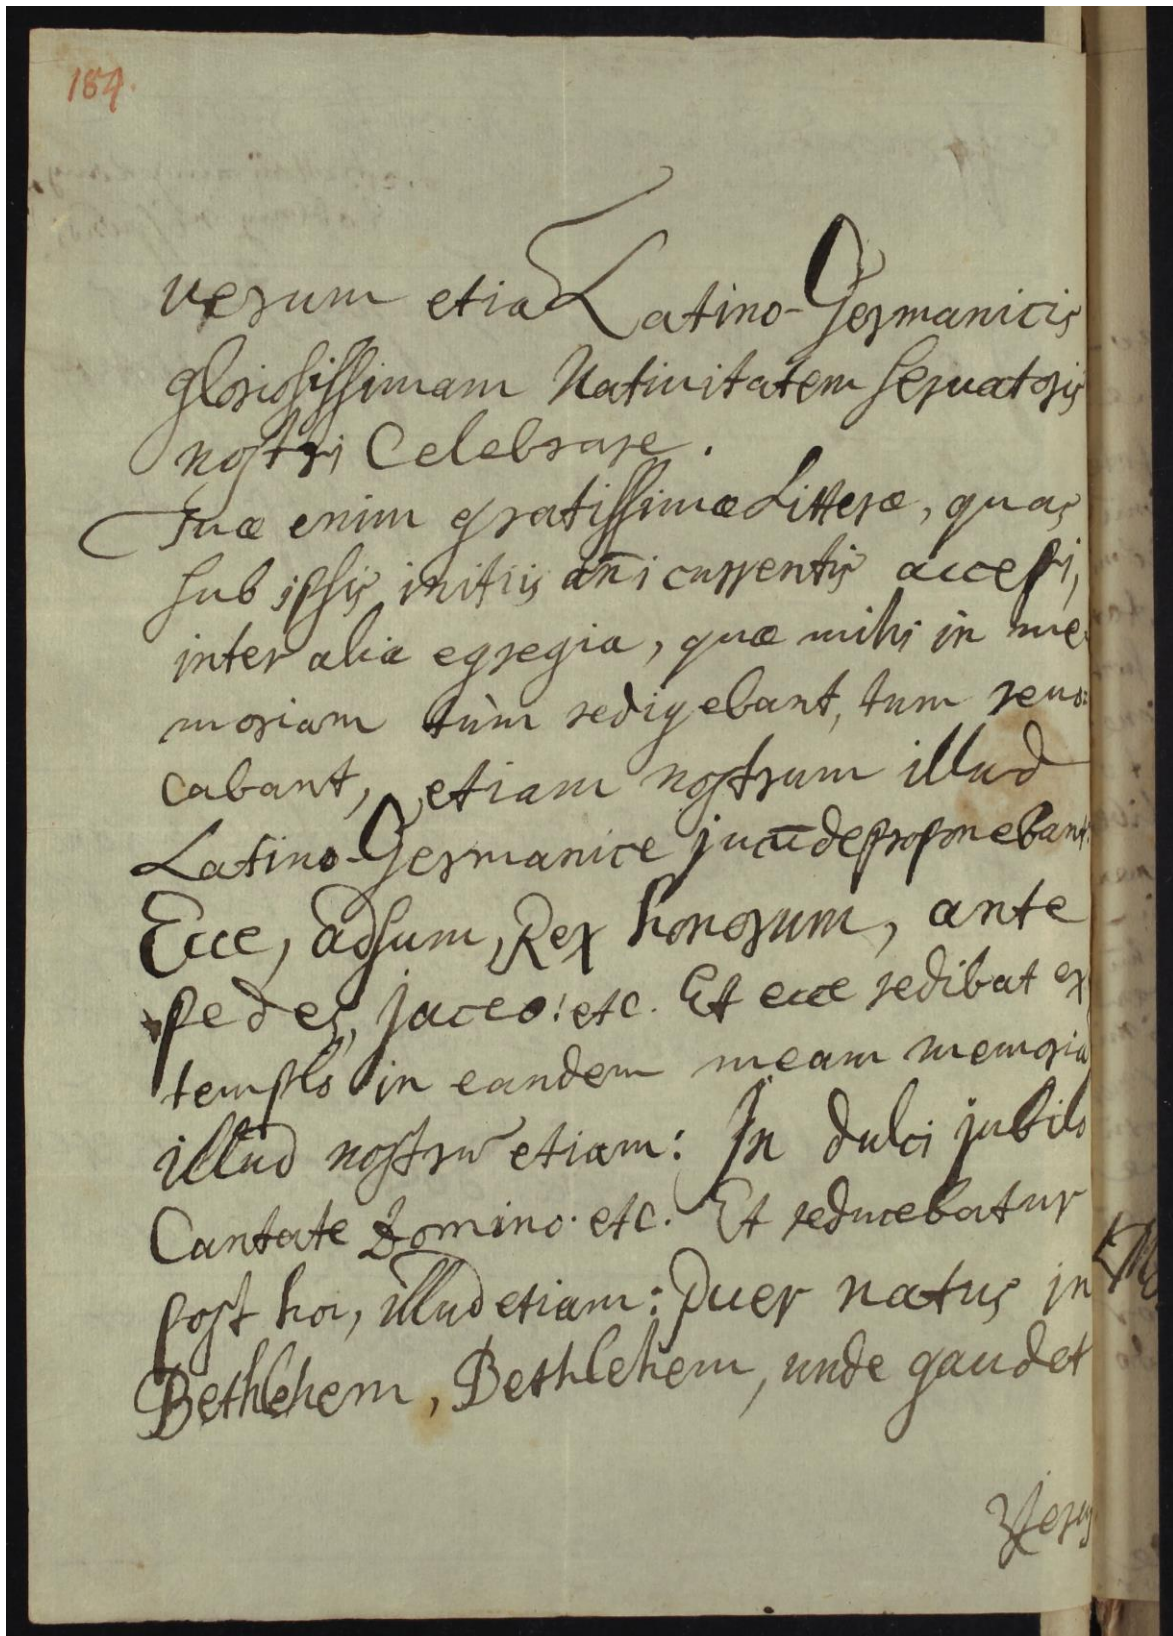 184.
verum etia Latino-Germanicis
gloriosissimam Nativitatem Servatoris
nostri Celebrare.
Tuæ enim gratissimæ Litteræ, quas
sub ipsis initiis an̄i currentis accepi,
inter alia egregia, quæ mihi in me-
moriam tùm redigebant, tum revo:
cabant, etiam nostrum illud
Latino-Germanice jucūde proponebant:
Ecce, adsum, Rex honorum, ante
pedes, jaceo! etc. Et ecce redibat ex
templo in eandem meam memoria
illud nostrū etiam: In dulci jubilo
Cantate Domino. etc. Et reducebatur
post hoc, illud etiam: Puer natus in
Bethlehem, Bethlehem, unde gaudet